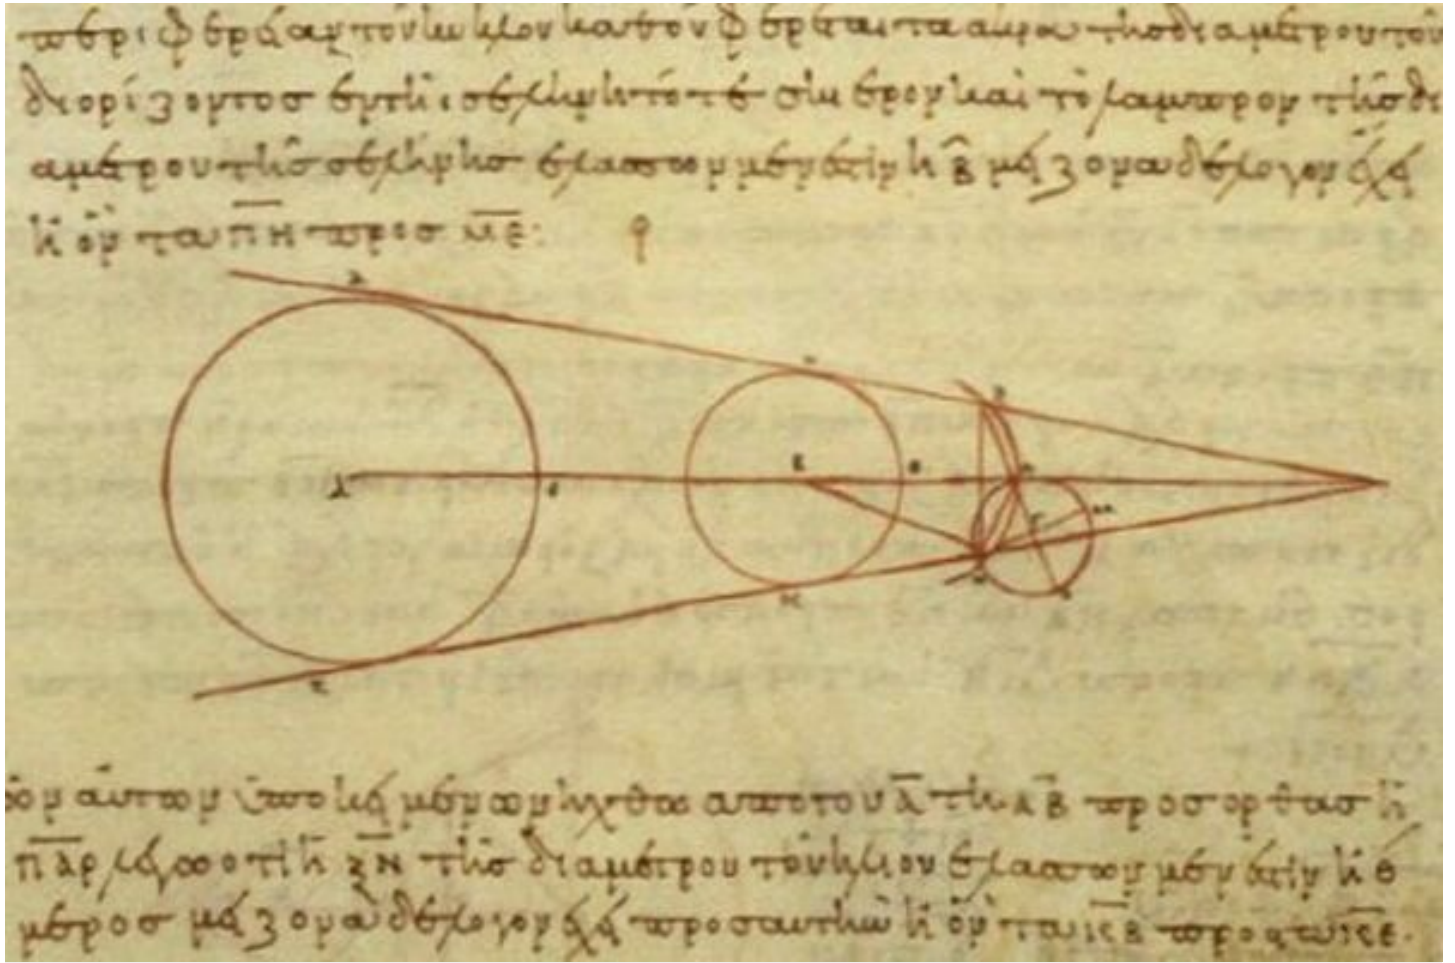 περιφέρειαν τοῦ κύκλου καθ' ὃν φέρεται τὰ ἄκρα τῆς διαμέτρου τοῦ
διορίζοντος ἐν τῇ σελήνῃ τό τε σκιερὸν καὶ τὸ λαμπρὸν τῆς δι
αμέτρου τῆς σελήνης ἐλάσσων μέν ἐστιν ἢ β̅ μείζονα δὲ λόγον ἔχει
ἢ ὃν τὰ π̅η̅ πρὸς μ̅ε̅:
αὐτῶν ὑποκειμένων ἤχθω ἀπὸ τοῦ α̅ τῇ α̅β̅ πρὸς ὀρθὰς ἡ
π̅α̅ρ̅ λέγω ὅτι ἡ ξ̅ν̅ τῆς διαμέτρου τοῦ ἡλίου ἐλάσσων μέν ἐστιν ἢ θ
μέρος μείζονα δὲ λόγον ἔχει πρὸς αὐτὴν ἢ ὃν τὰ κ̅β̅ πρὸς